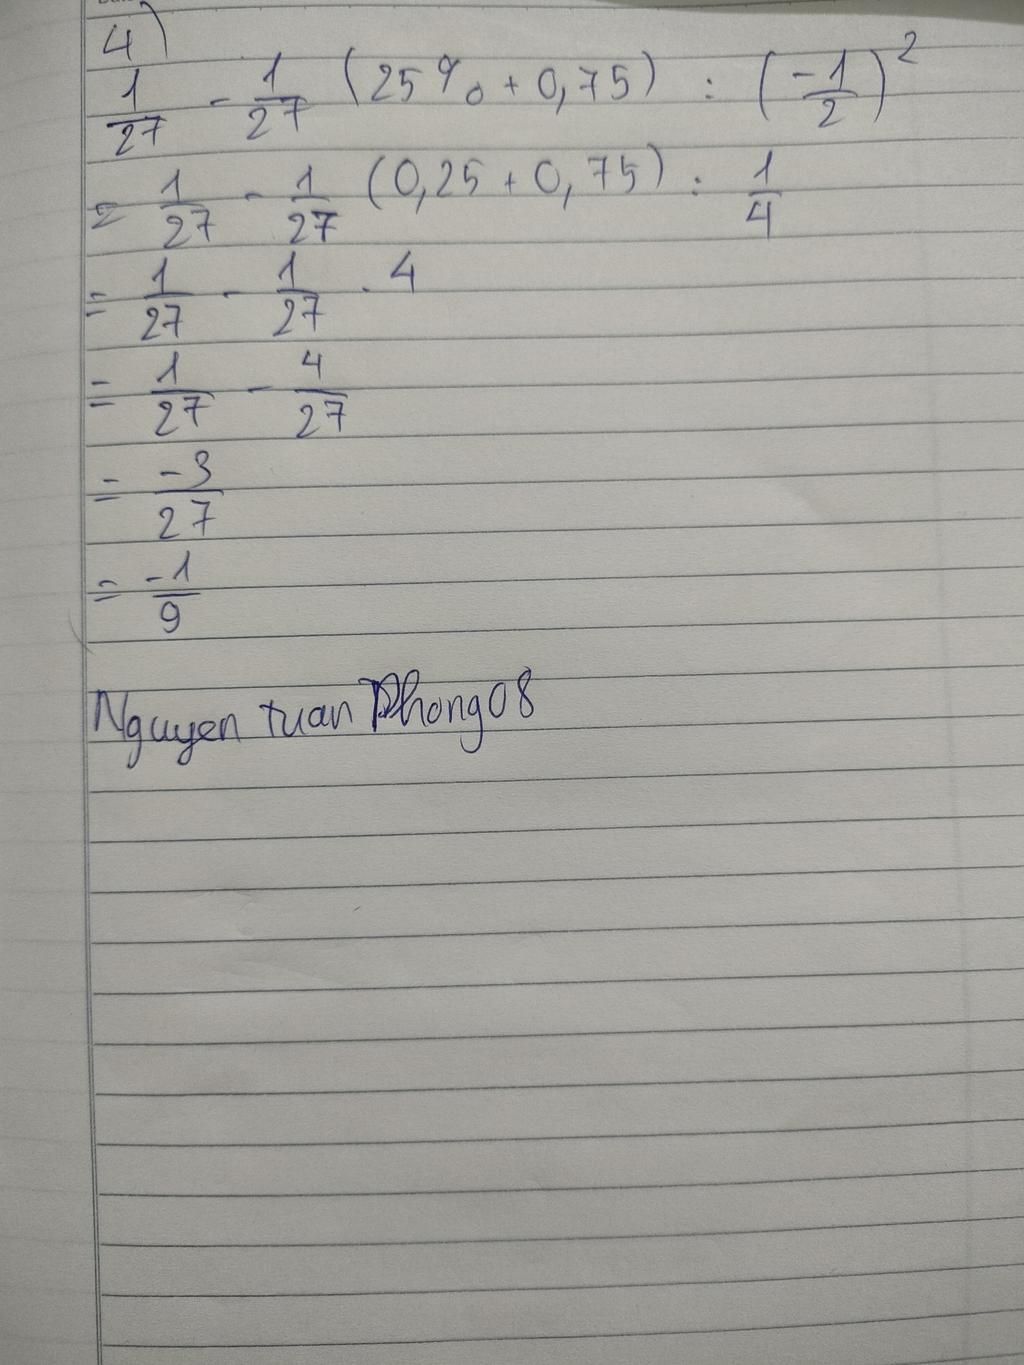 4)
1/27 - 1/27 (25% + 0,75) : (-1/2)²
= 1/27 - 1/27 (0,25 + 0,75) : 1/4
= 1/27 - 1/27 . 4
= 1/27 - 4/27
= -3/27
= -1/9
Nguyen tuan Phong08